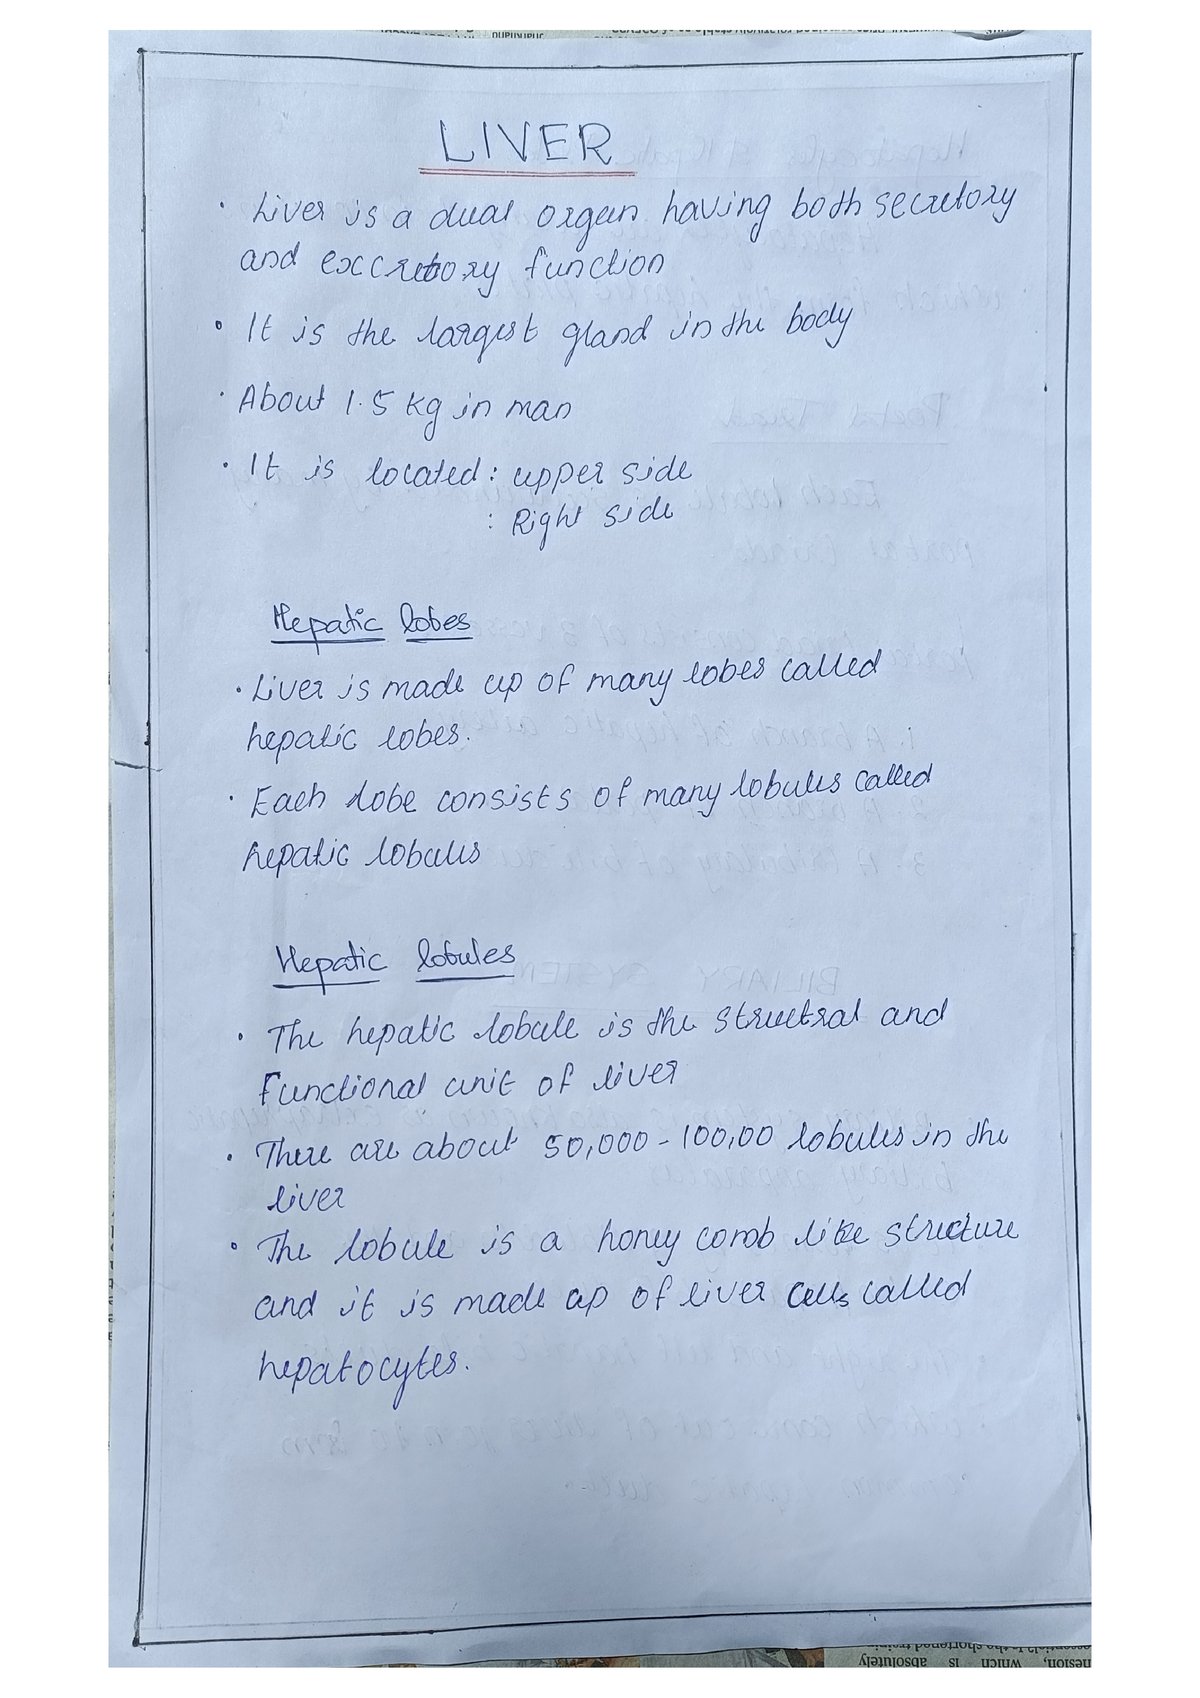 LIVER
• Liver is a dual organ having both secretory
and exccretory function
• It is the largest gland in the body
• About 1.5 kg in man
• It is located : upper side
: Right side
Hepatic lobes
• Liver is made up of many lobes called
hepatic lobes.
• Each lobe consists of many lobules called
hepatic lobules
Hepatic lobules
• The hepatic lobule is the structral and
Functional unit of liver
• There are about 50,000 - 100,00 lobules in the
liver
• The lobule is a honey comb like structure
and it is made up of liver cells called
hepatocytes.